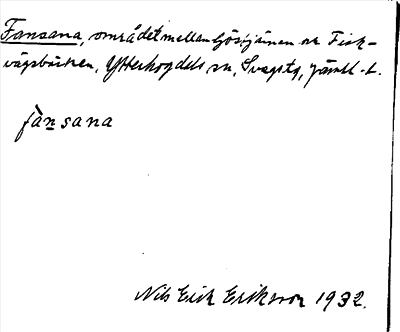 Fansana, området mellan Ljöstjärnen ok Fisk-
vägsbäcken, Ytterhogdals sn, Svegs tg, Jämtl. l.
fànsana
Nils Erik Eriksson 1932.